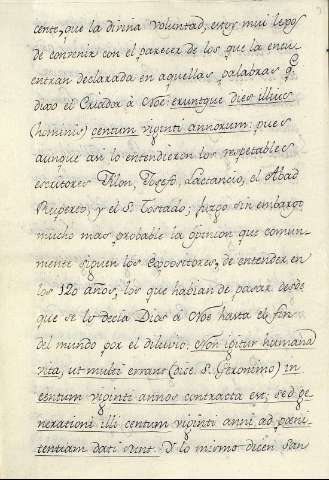 cente, que la divina Voluntad, estoy mui lejos
de convenir con el parecer de los que la encu
entran declarada en aquellas palabras q.^e
dixo el Criador à Noè: eruntque dies illius
(hominis) centum viginti annorum: pues
aunque asi lo entendieron los respetables
escritores Filon, Josefo, Lactancio, el Abad
Ruperto, y el S. Tostado; juzgo sin embargo
mucho mas probable la opinion que comun-
mente siguen los Expositores, de entender en
los 120 años, los que habian de pasar desde
que se lo decia Dios à Noè hasta el fin
del mundo por el diluvio. Non igitur humana
vita, ut multi errant (dice S. Geronimo) in
centum viginti annos contracta est; sed ge-
nerationi illi centum viginti anni ad poeni-
tentiam dati sunt. Y lo mismo dicen San